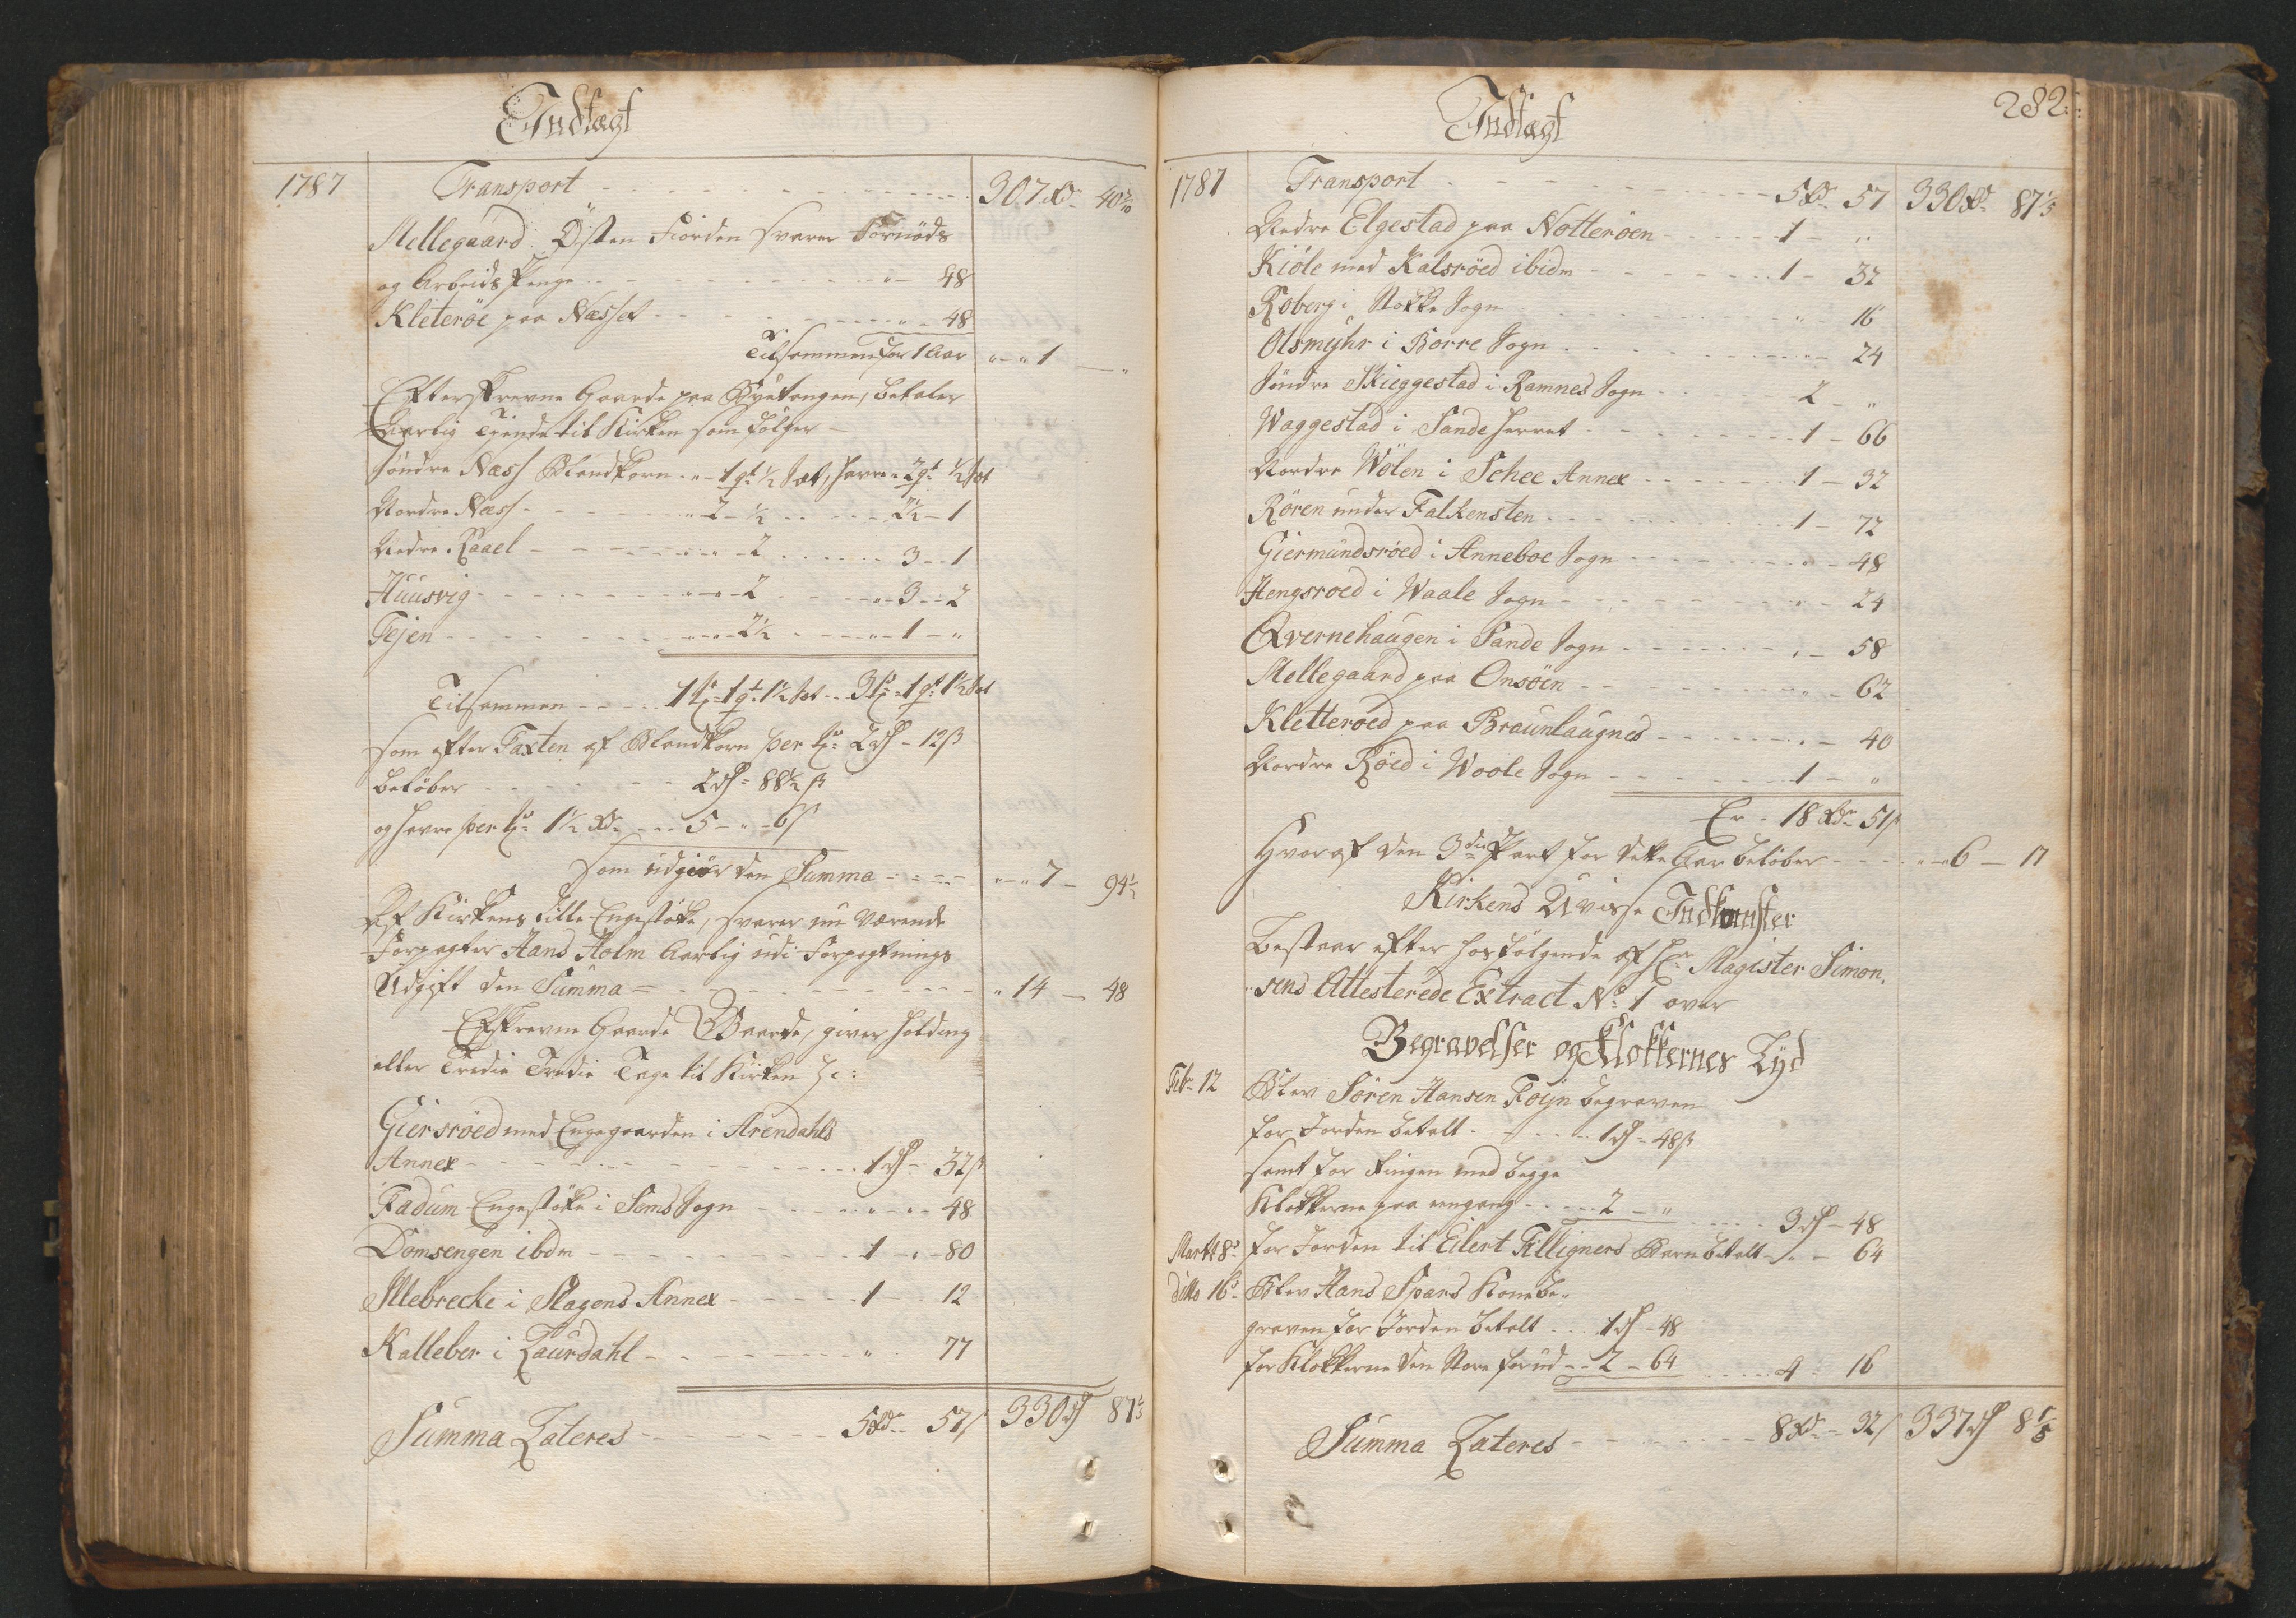 Indtægt
1787 Transport - - - 307 Rd 40 7/10
Mellegaard Østen Fiorden svarer Fornøds
og Arbeids Penge - - - " - 48
Kleterøe paa Næsset - - - " - 48
Tilsammen for 1 Aar " - " 1 - "
Efterskrevne Gaarde paa , betaler
Aarlig Tjende til Kirken som følger -
Søndre Næss Blandkorn - " - 1 qt 1/2 Set, Havre - 2 qt 1/2 Set
Nordre Næss - - - " - 2 - 1/2 - - - 2 1/2 - 1
Nedre Raael - - - " - 2 - - - 3 - - 1
Huusvig - - - " - " - 2 - - - " - 3 - - 2
Fejen - - - " - " - 2 1/2 - - - " - 1 - "
Tilsammen - - - 1 Tr - 1 qt 1 1/2 Set - - 3 Tr - 1 qt 1 1/2 Set
som efter Taxten af Blandkorn per Tr 2 rd - 12 s
beløber - - - 2 rd - 88 1/2 s
og Havre per Tr 1 1/2 Rd - - - 5 - " - 6 s
som udgiør den Summa - - - " - " 7 - 94 1/2
Af Kirkens Engestøke, svarer nu værende
Forpagter Hans Holm Aarlig udi Forpagtnings
Udgift den Summa = - - - " 14 - 48
Efskrevne Gaarde Gaarde, giver Holding
eller Tredie Tredie Tage til Kirken :
Giersrøed med Engegaarden i Arendahls
Annex - - - 1 rd - 32 s
Fadum Engestøke i Sems Sogn - - - " - 48
Domsengen ibdm - - - 1 - " - 80
Illebrecke i Slagens Annex - - - 1 - - 12
Kalleber i Laurdahl - - - " - 77
Summa Lateres - - - 5 Rd - 57 s 330 rd 87 1/5
282
Indtægt
1787 Transport - - - 5 Rd - 57 330 Rd 87 1/5
Nedre Elgestad paa Notterøen - - - 1 - "
Kiøle med Kalsrøed ibidm - - - 1 - 32
Roberg i Stokke Sogn - - - " - 16
Olsmyhr i Borre Sogn - - - " - 24
Søndre Skieggestad i Ramnes Sogn - - - 2 - "
Waggestad i Sandeherret - - - 1 - 66
Nordre Wølen i Schee Annex - - - 1 - 32
Røren under Falkensten - - - 1 - 72
Giermundsrøed i Anneboe Sogn - - - " - 48
Hengsroed i Waale Sogn - - - " - 24
Qvernehaugen i Sande Sogn - - - " - 58
Mellegaard paa Onsøen - - - " - 62
Kletteroed paa Braunlaugnes - - - " - 40
Nordre Røed i Woole Sogn - - - 1 - "
Er - 18 Rd - 51 s
Hvoraf den 3die Part for dette Aar beløber - - - " - 6 - 17
Kirkens Uvisse Indkomster
Bestaar efter hosfølgende af Hr Magister Simon-
"sens Attesterede Extract No 1 over
Begravelser og Klokkernes Lyd
Feb: 12 Blev Søren Hansen Foyn begraven
for Jorden betalt - - - 1 rd - 48 s
samt for Ringen med begge
Klokkerne paa engang - - - 2 - " - - - 3 rd - 48
Marti 8d For Jorden til Eilert Filligners Barn betalt - " - 64
ditto 16d Blev Hans Spars Kone be-
graven for Jorden betalt - - - 1 rd - 48
for Klokkerne den Store forud - - 2 - 64 - - - 4 - 16
Summa Lateres - - - 8 Rd - 32 s 337 rd 8 1/5